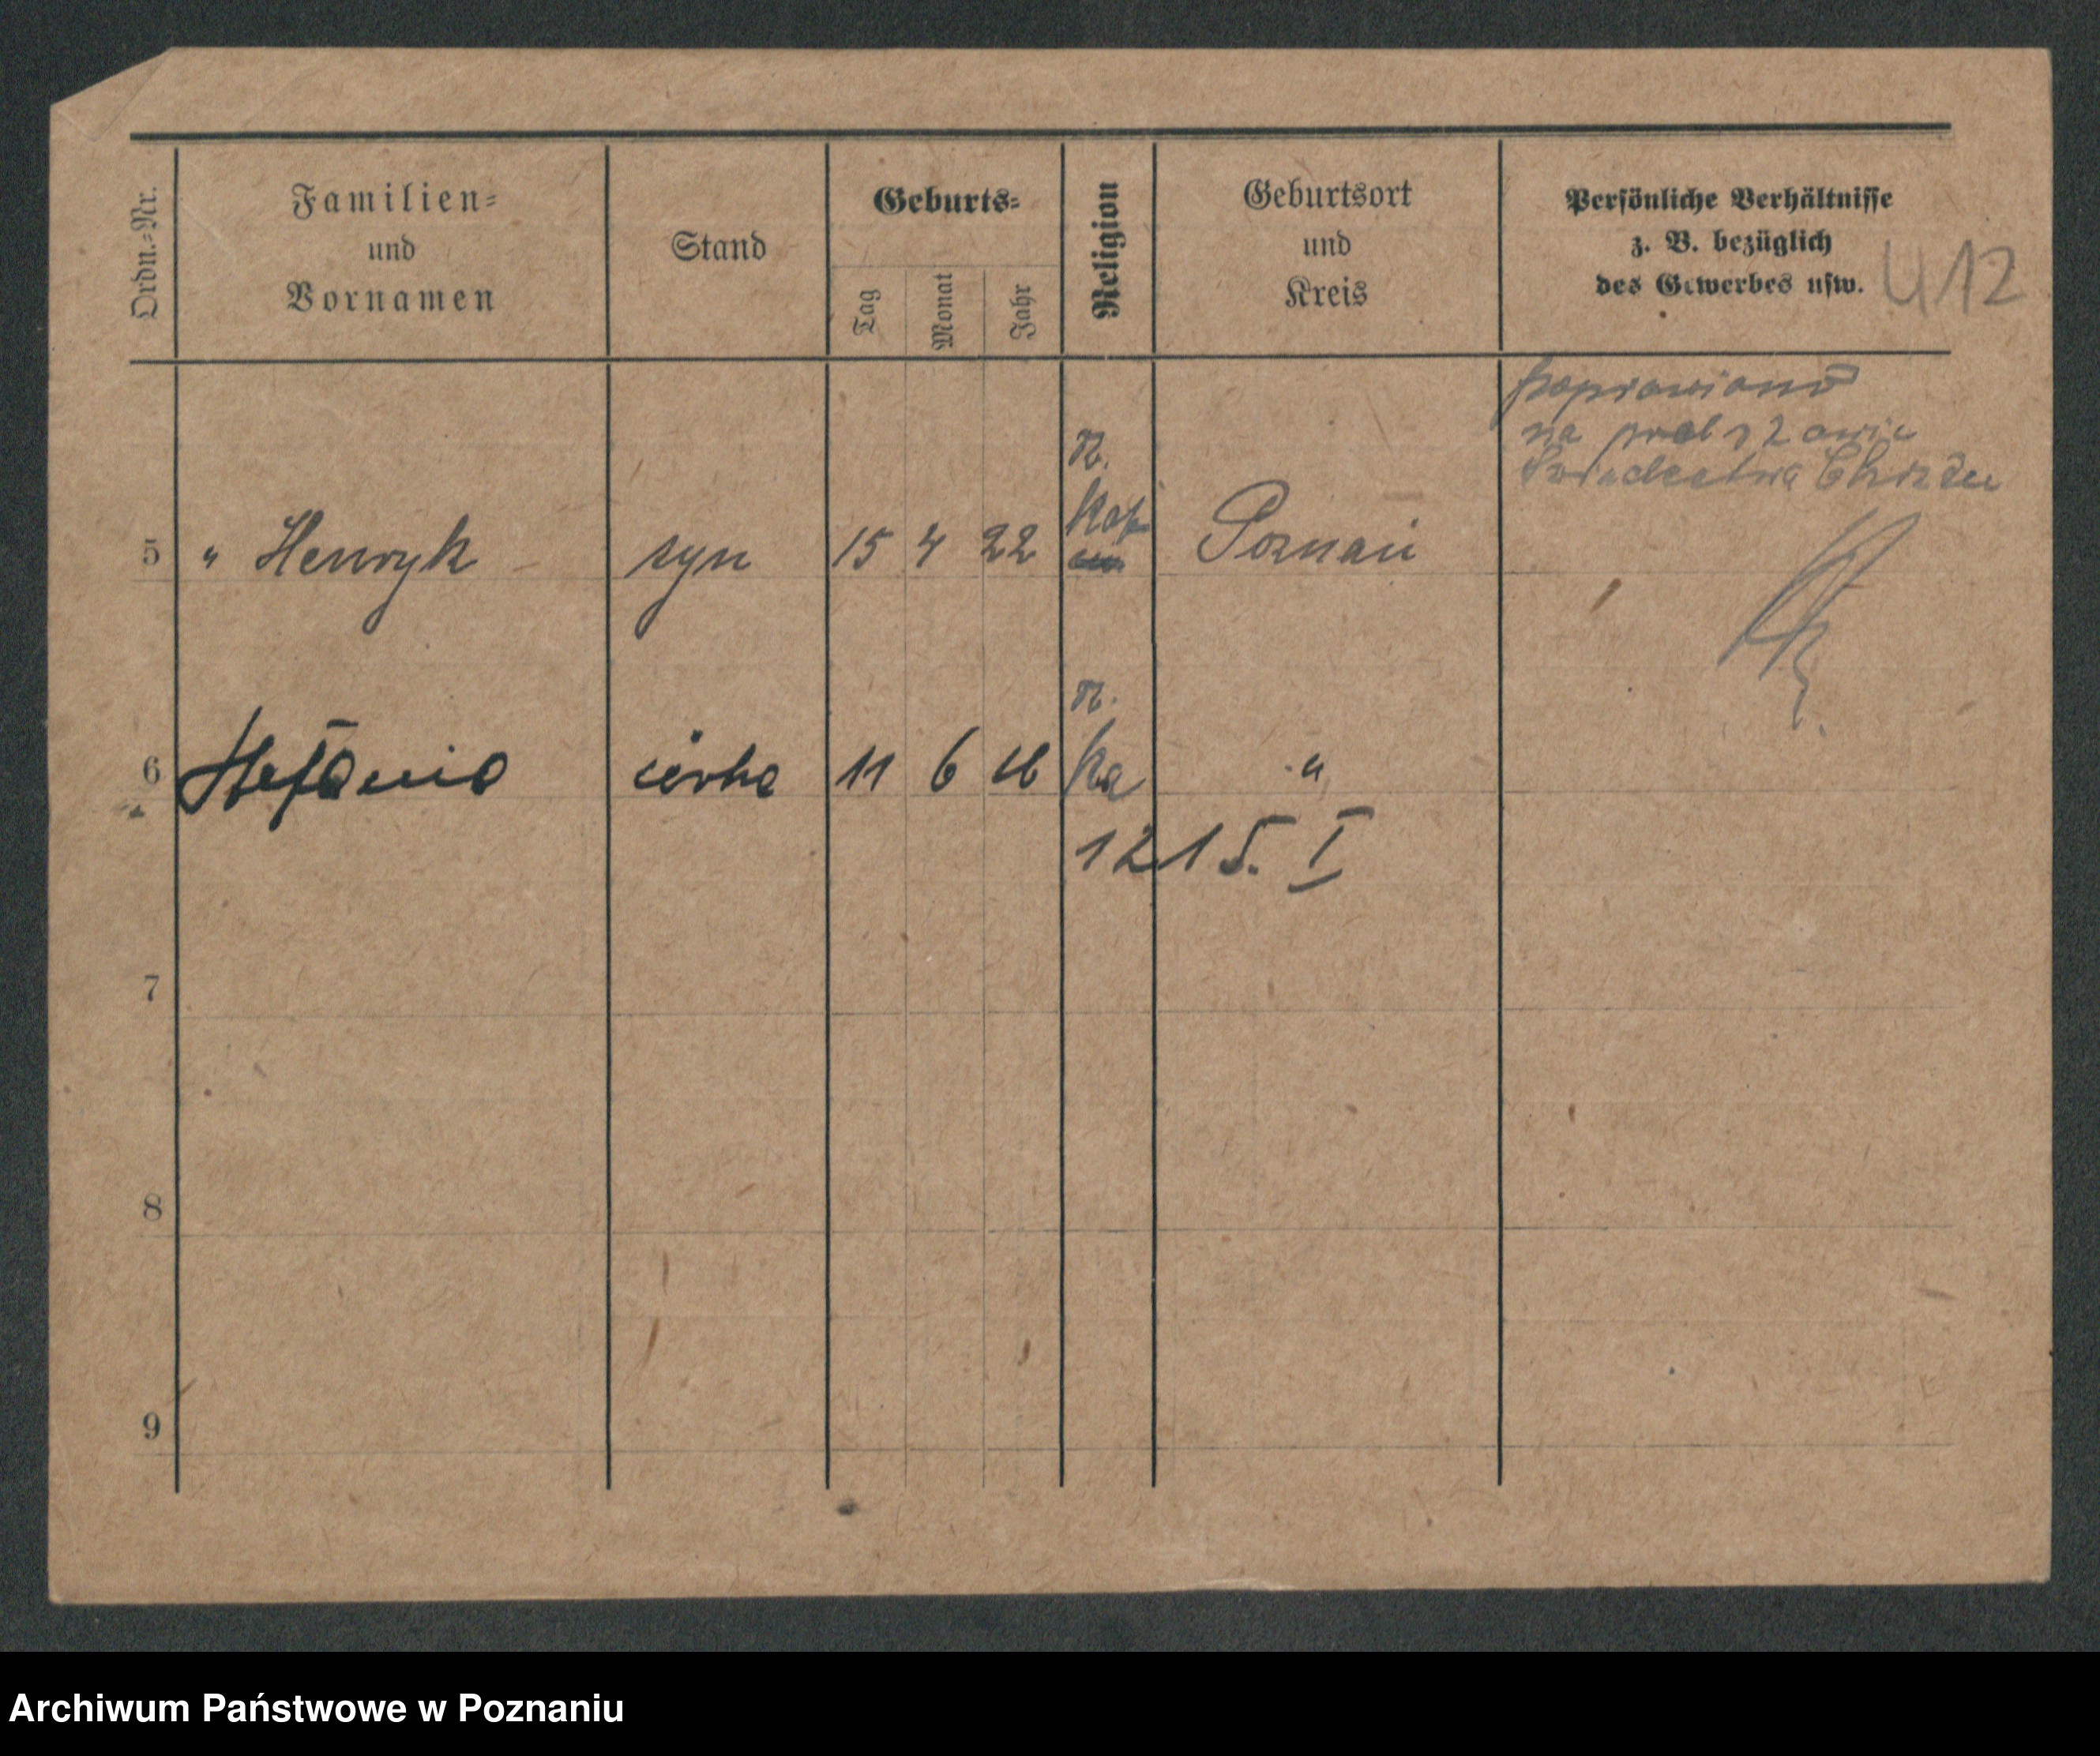 Ordn.-Nr.
Familien-
und
Vornamen
Stand
Geburts-
Tag
Monat
Jahr
Religion
Geburtsort
und
Kreis
Persönliche Verhältnisse
z. B. bezüglich
des Gewerbes usw.
412
poprawiono
na
Świadectwa
5 " Henryk syn 15 4 22 rz. kat Poznań
6 Stefania córka 11 6 rz. ka "
1215. I
7
8
9
Archiwum Państwowe w Poznaniu